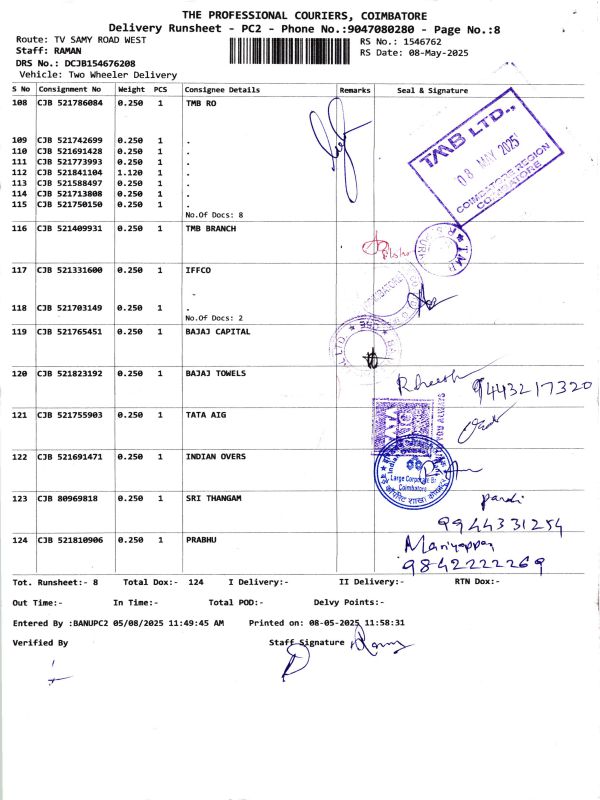 THE PROFESSIONAL COURIERS, COIMBATORE
Delivery Runsheet - PC2 - Phone No.:9047080280 - Page No.:8
Route: TV SAMY ROAD WEST
RS No.: 1546762
Staff: RAMAN
RS Date: 08-May-2025
DRS No.: DCJB154676208
Vehicle: Two Wheeler Delivery
S No Consignment No Weight PCS Consignee Details Remarks Seal & Signature
108 CJB 521786084 0.250 1 TMB RO
TMB LTD.,
08 MAY 2025
COIMBATORE REGION
COIMBATORE
109 CJB 521742699 0.250 1 .
110 CJB 521691428 0.250 1 .
111 CJB 521773993 0.250 1 .
112 CJB 521841104 1.120 1 .
113 CJB 521588497 0.250 1 .
114 CJB 521713808 0.250 1 .
115 CJB 521750150 0.250 1 .
No.Of Docs: 8
116 CJB 521409931 0.250 1 TMB BRANCH
117 CJB 521331600 0.250 1 IFFCO
118 CJB 521703149 0.250 1 .
No.Of Docs: 2
119 CJB 521765451 0.250 1 BAJAJ CAPITAL
120 CJB 521823192 0.250 1 BAJAJ TOWELS
9443217320
121 CJB 521755903 0.250 1 TATA AIG
YOU ALWAYS
122 CJB 521691471 0.250 1 INDIAN OVERS
Large Corporate Br
Coimbatore
123 CJB 80969818 0.250 1 SRI THANGAM
pandi
9944331254
124 CJB 521810906 0.250 1 PRABHU
Mariyappan
9842222269
Tot. Runsheet:- 8 Total Dox:- 124 I Delivery:- II Delivery:- RTN Dox:-
Out Time:- In Time:- Total POD:- Delvy Points:-
Entered By :BANUPC2 05/08/2025 11:49:45 AM Printed on: 08-05-2025 11:58:31
Verified By Staff Signature